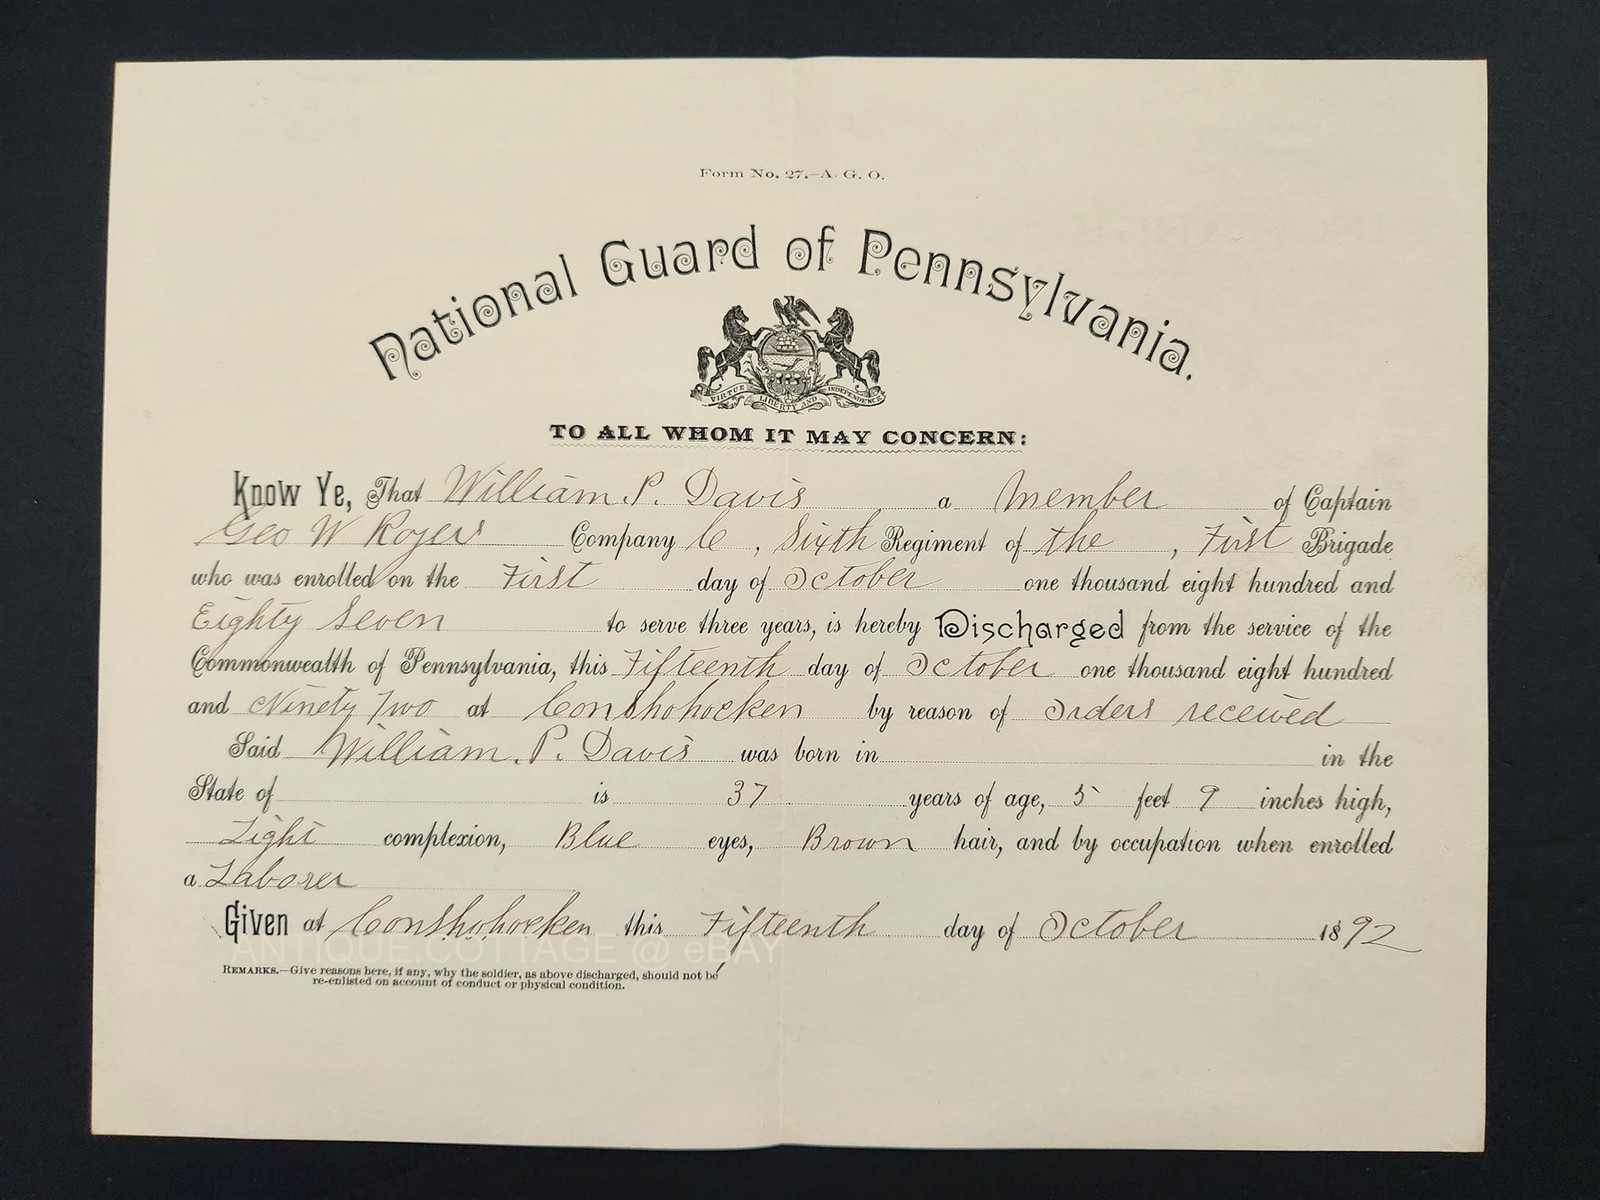 Form No. 27.—A. G. O.
National Guard of Pennsylvania.
VIRTUE LIBERTY AND INDEPENDENCE
TO ALL WHOM IT MAY CONCERN:
Know Ye, That William P. Davis a Member of Captain
Geo W Rogers Company C, Sixth Regiment of the, First Brigade
who was enrolled on the First day of October one thousand eight hundred and
Eighty Seven to serve three years, is hereby Discharged from the service of the
Commonwealth of Pennsylvania, this Fifteenth day of October one thousand eight hundred
and Ninety Two at Conshohocken by reason of Orders received
Said William. P. Davis was born in in the
State of is 37 years of age, 5 feet 9 inches high,
Light complexion, Blue eyes, Brown hair, and by occupation when enrolled
a Laborer
Given at Conshohocken this Fifteenth day of October 1892
ANTIQUE.COTTAGE @ eBAY
REMARKS.—Give reasons here, if any, why the soldier, as above discharged, should not be
re-enlisted on account of conduct or physical condition.